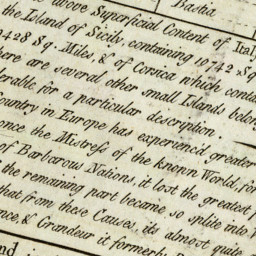 Bastia
above Superficial Content of Ital
the Island of Sicily containing 10742 Sq
9428 Sq. Miles, & of Corsica which conta
here are several other small Islands belon
erable for a particular description.
Country in Europe has experienc'd greater
once the Mistress of the known World, for
of Barbarous Nations, it lost the greatest p
the remaining part became so split into
that from these Causes, its almost quite
nce, & Grandeur it formerly
nd